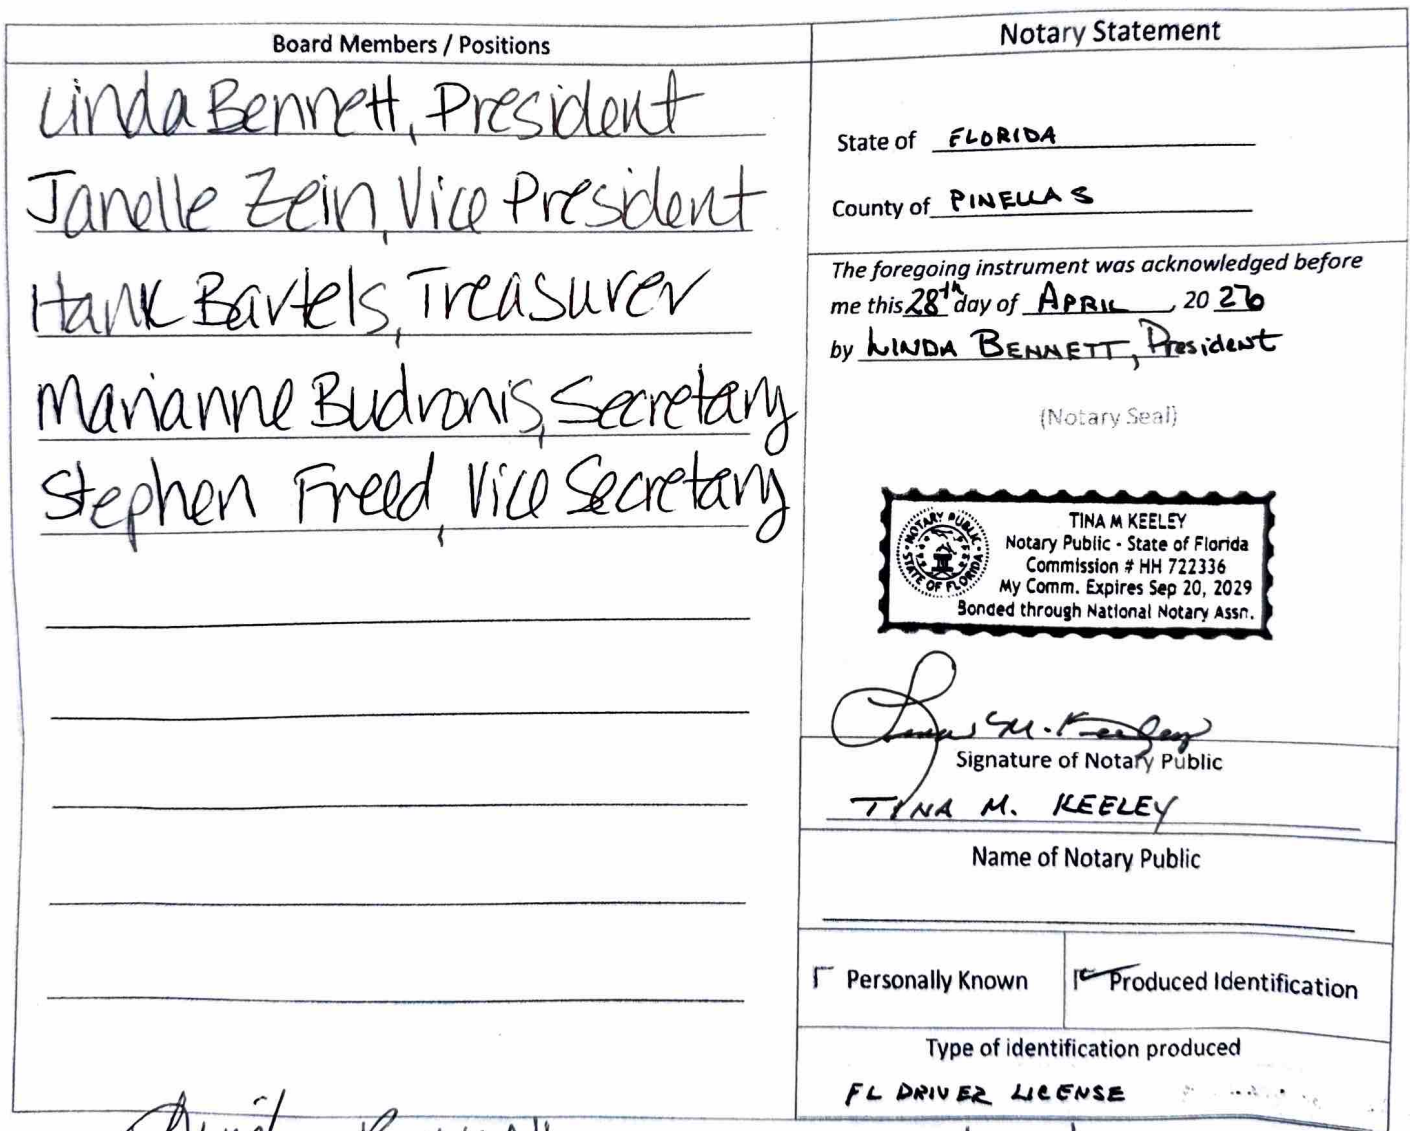 Board Members / Positions
Linda Bennett, President
Janelle Zein, Vice President
Hank Bartels, Treasurer
Marianne Budronis, Secretary
Stephen Freed, Vice Secretary
Notary Statement
State of FLORIDA
County of PINELLAS
The foregoing instrument was acknowledged before
me this 28th day of APRIL, 20 26
by LINDA BENNETT, President
(Notary Seal)
NOTARY PUBLIC
STATE OF FLORIDA
TINA M KEELEY
Notary Public - State of Florida
Commission # HH 722336
My Comm. Expires Sep 20, 2029
Bonded through National Notary Assn.
Tina M. Keeley
Signature of Notary Public
TINA M. KEELEY
Name of Notary Public
Personally Known
Produced Identification
Type of identification produced
FL DRIVER LICENSE